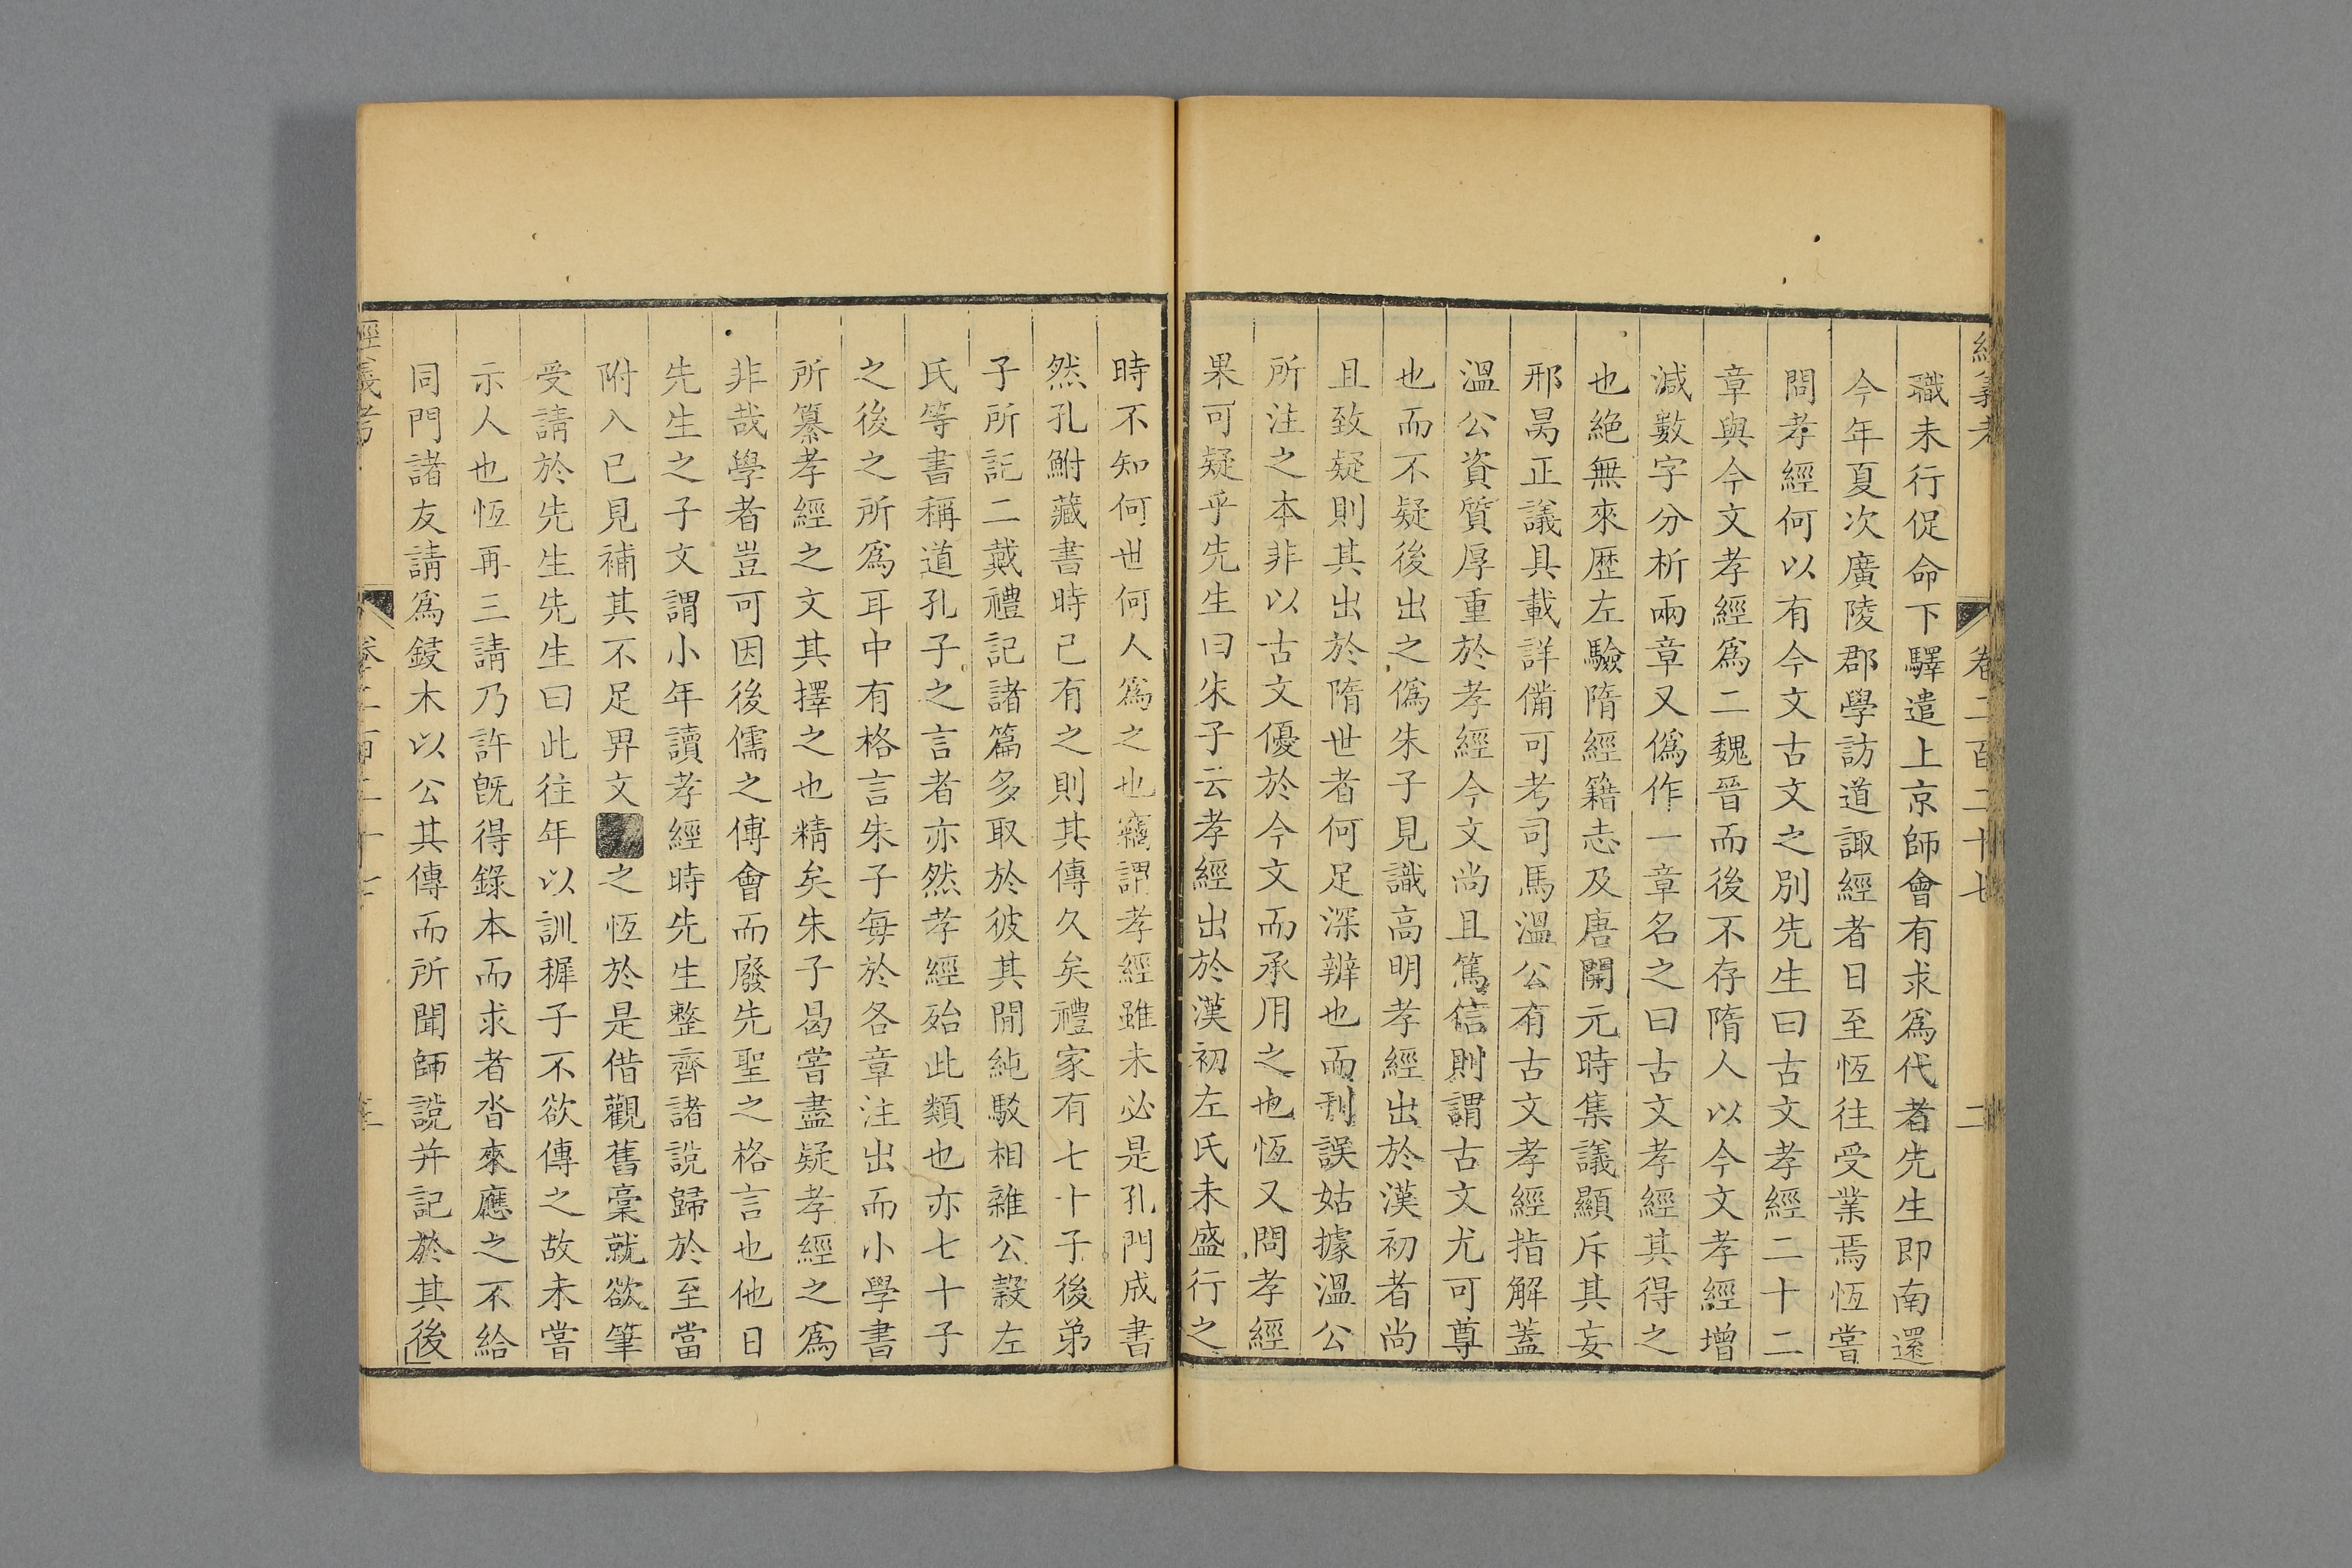 經義考 卷二百二十七 二
職未行促命下驛遣上京師會有求爲代者先生即南還
今年夏次廣陵郡學訪道諏經者日至恆往受業焉恆嘗
問孝經何以有今文古文之別先生曰古文孝經二十二
章與今文孝經爲二魏晉而後不存隋人以今文孝經增
減數字分析兩章又僞作一章名之曰古文孝經其得之
也絕無來歷左驗隋經籍志及唐開元時集議顯斥其妄
邢昺正議具載詳備可考司馬溫公有古文孝經指解蓋
溫公資質厚重於孝經今文尚且篤信則謂古文尤可尊
也而不疑後出之僞朱子見識高明孝經出於漢初者尚
且致疑則其出於隋世者何足深辨也而刊誤姑據溫公
所注之本非以古文優於今文而承用之也恆又問孝經
果可疑乎先生曰朱子云孝經出於漢初左氏未盛行之
時不知何世何人爲之也竊謂孝經雖未必是孔門成書
然孔鮒藏書時已有之則其傳久矣禮家有七十子後弟
子所記二戴禮記諸篇多取於彼其閒純駁相雜公穀左
氏等書稱道孔子之言者亦然孝經殆此類也亦七十子
之後之所爲耳中有格言朱子每於各章注出而小學書
所纂孝經之文其擇之也精矣朱子曷嘗盡疑孝經之爲
非哉學者豈可因後儒之傅會而廢先聖之格言也他日
先生之子文謂小年讀孝經時先生整齊諸說歸於至當
附入已見補其不足畀文之恆於是借觀舊稾就欲筆
受請於先生先生曰此往年以訓穉子不欲傳之故未嘗
示人也恆再三請乃許旣得錄本而求者沓來應之不給
同門諸友請爲鋟木以公其傳而所聞師說并記於其後
經義考 卷二百二十七